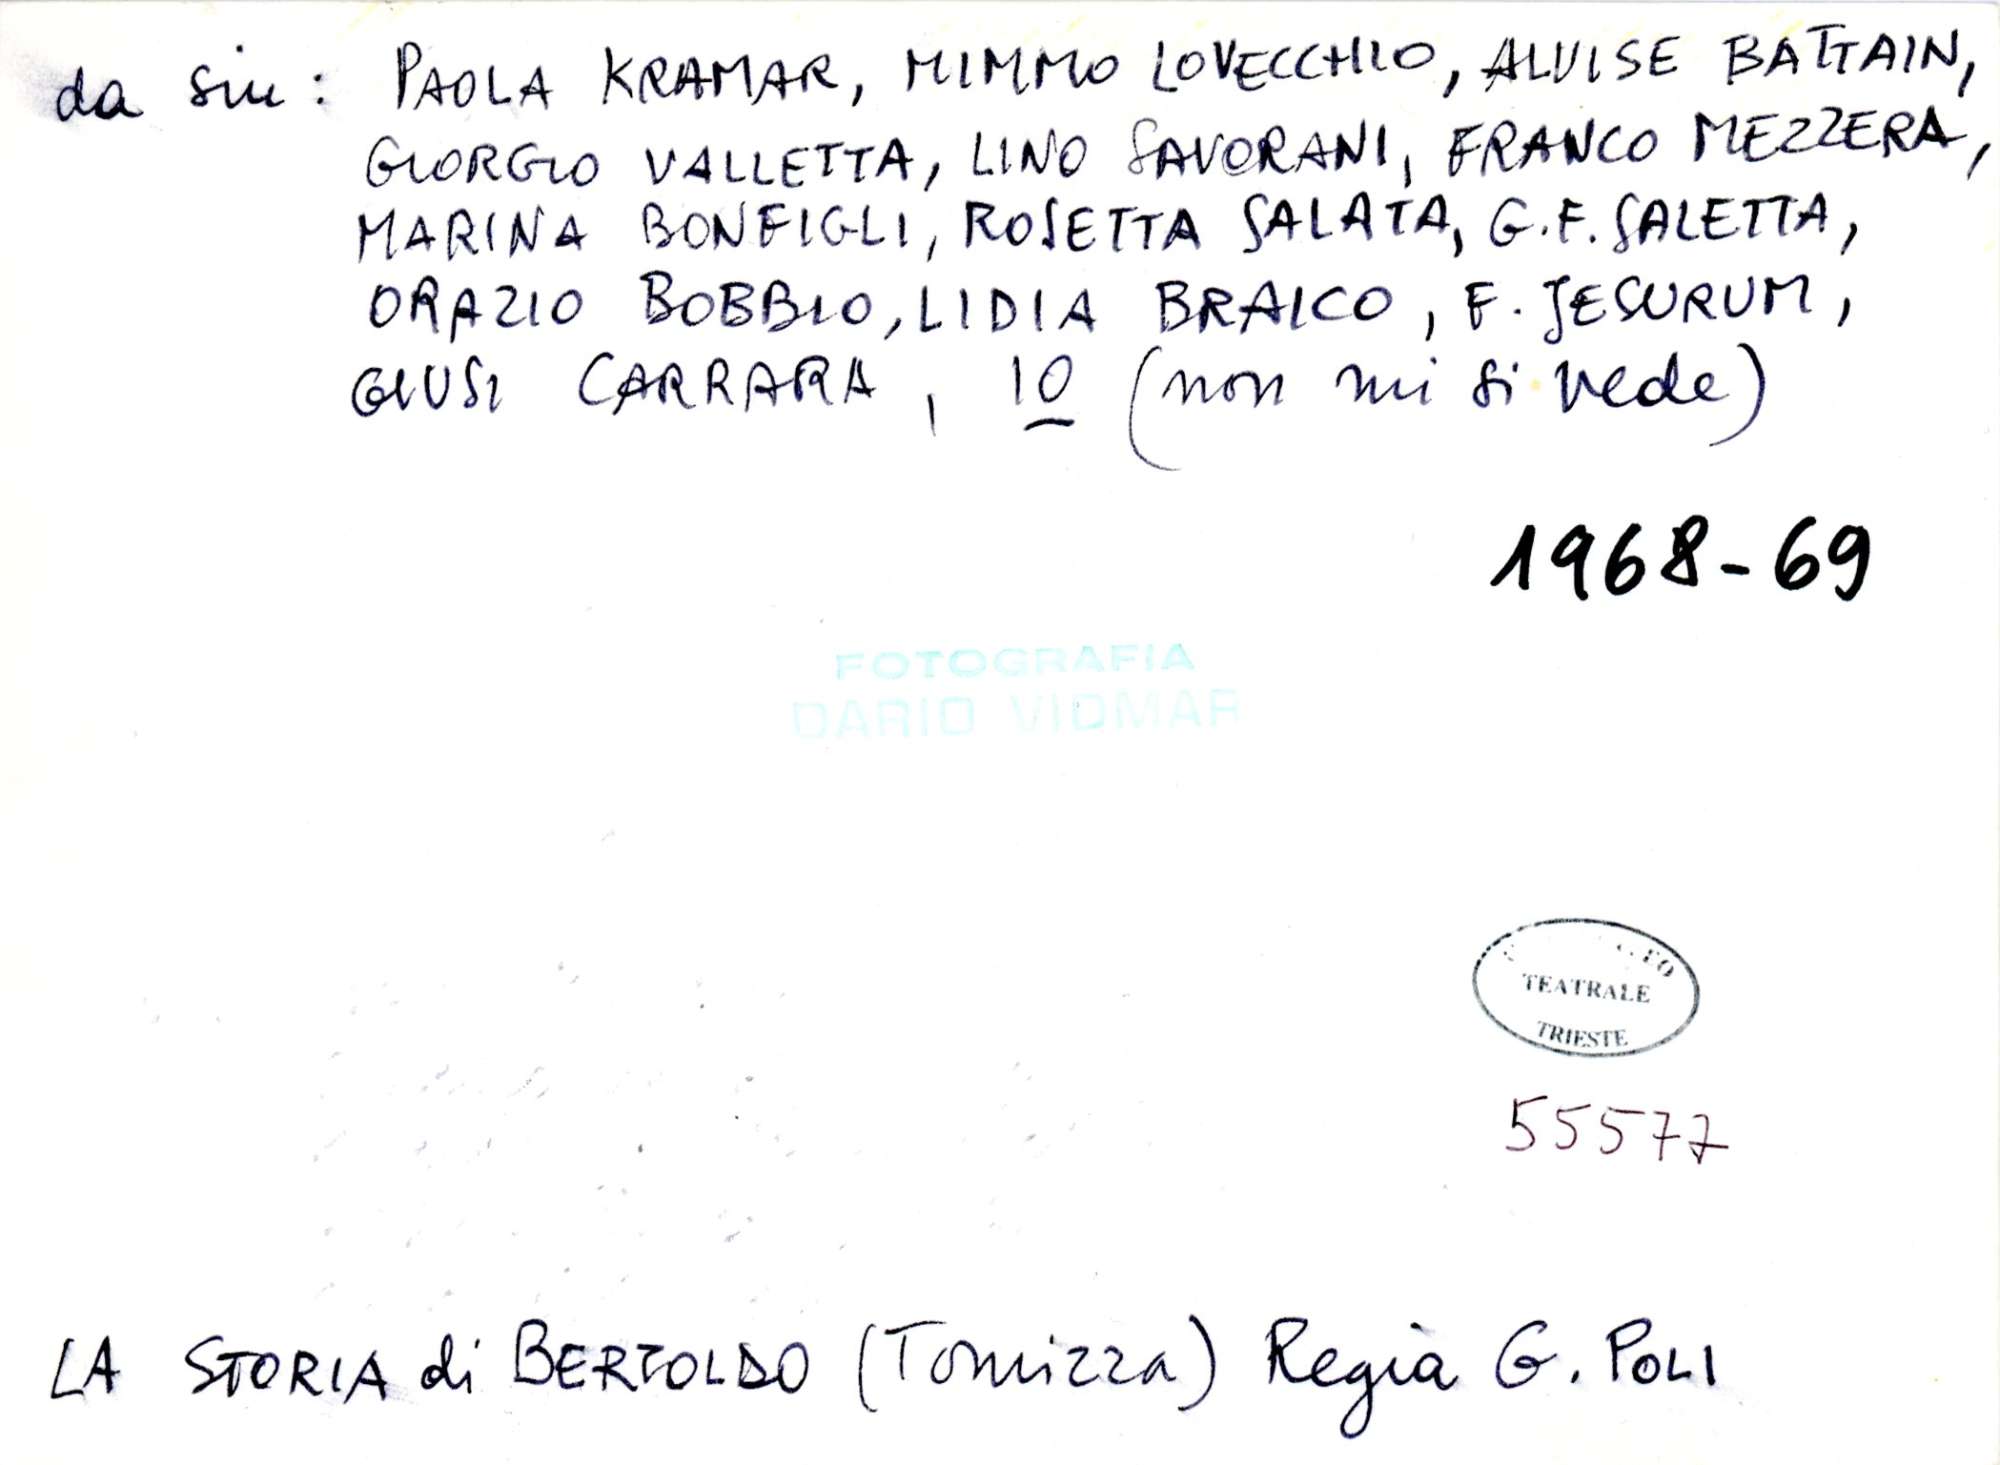 da sin: PAOLA KRAMAR, MIMMO LOVECCHIO, ALVISE BATTAIN,
GIORGIO VALLETTA, LINO SAVORANI, FRANCO MEZZERA,
MARINA BONFIGLI, ROSETTA SALATA, G.F. SALETTA,
ORAZIO BOBBIO, LIDIA BRAICO, F. JESURUM,
GIUSI CARRARA, IO (non mi si vede)
1968-69
FOTOGRAFIA
DARIO VIDMAR
TEATRALE
TRIESTE
55577
LA STORIA di BERTOLDO (Tomizza) Regia G. POLI